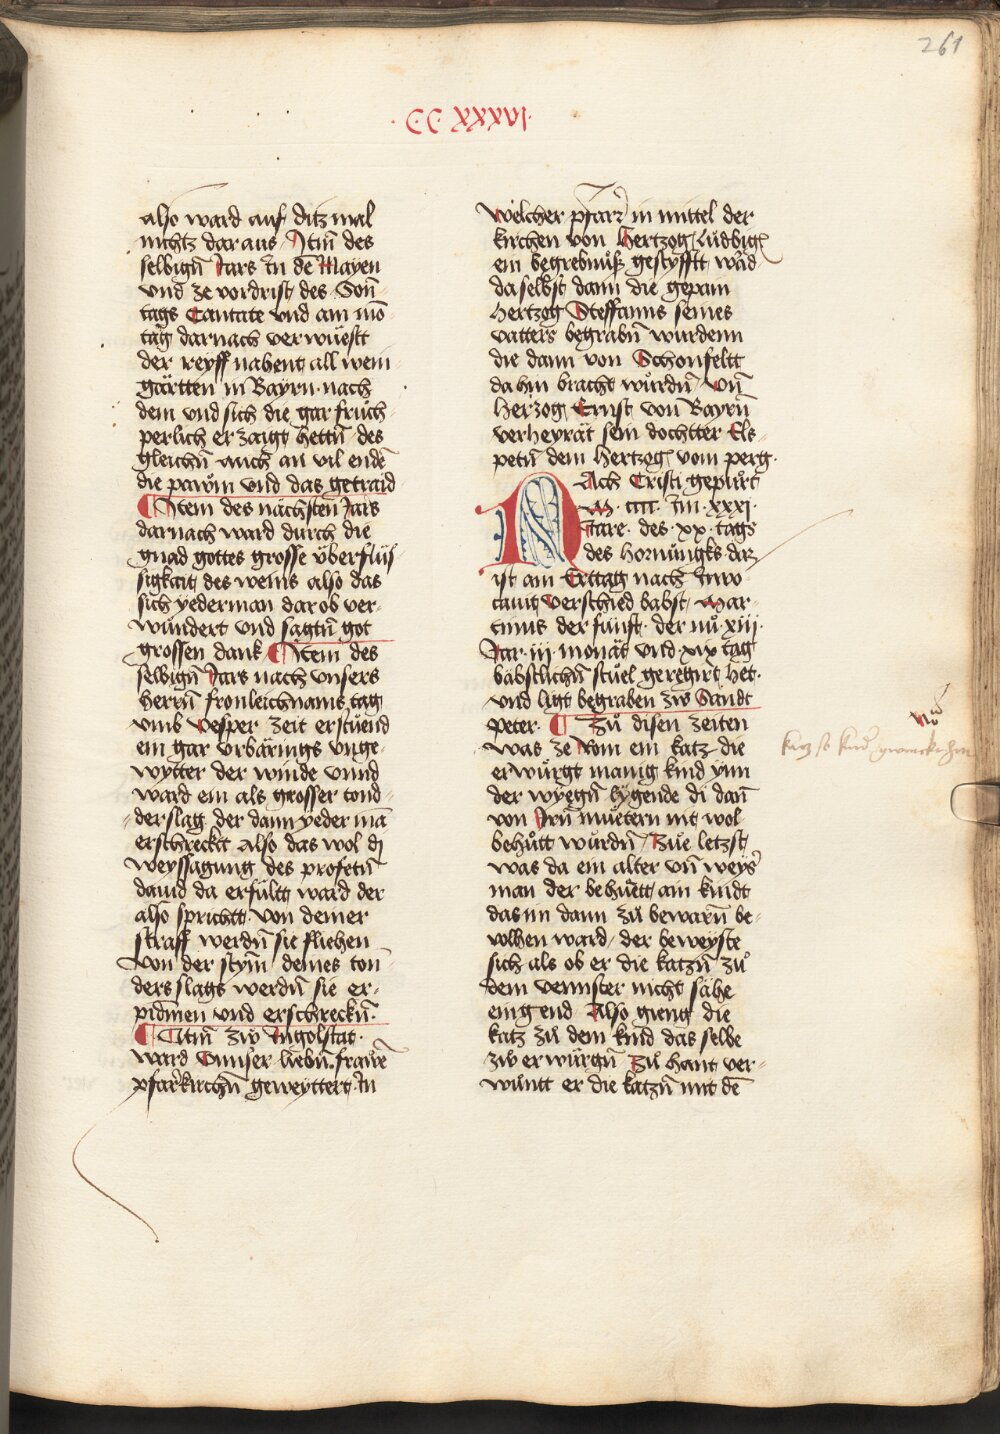 261
·CC XXXVI·
also ward auf ditz mal
nichtz dar aus · Itm̄ des
selbigñ Jars In dē Mayen
vnd ze vordrist des Son̄
tags Cantate vnd am mō
tag darnach verwüestt
der reyff nahent all wein
gärtten in Bayrn · nach
dem vnd sich die gar früch
perlich erzaigt hettñ des
gleichñ auch an vil endē
die pawm̊ vnd das getraid
¶ Item des nächsten Jars
darnach ward durch die
gnad gottes grosse v̈berflüs
sigkait des weins also das
sich yederman dar ob ver-
wundert vnd sagtñ got
grossen dank ¶ Item des
selbigñ Jars nach vnsers
herrñ fronleichnams tag
vmb vesper zeit erstuend
ein gar vrbärings vnge-
wytter der winde vnnd
ward ein als grosser tond-
derslag der dann yeder mā
erschreckt also das wol dj
weyssagung des profetñ
dauid da erfültt ward der
also sprichtt · von deiner
straff werdñ sie fliehen
von der stym̄ deines ton
ders slags werdñ sie er-
pidmen vnd erschreckñ ·
¶ Itm̄ zw̋ Ingolstat ·
ward Vnnser liebñ frawē
pfarkirchñ geweyttert In
welcher pfarr in mittel der
kirchen von Hertzog Ludbigē
ein begrebnüß gestyfftt ward
daselbst dann die gepain
Hertzog Steffanns seines
vatters begrabñ wurdenn
die dann von Schonfeltt
da hin bracht wurdñ Vñ
Herzog Ernst von Bayrñ
verheyrät sein dochtter Els-
petñ dem Hertzog vom perg ·
NAch Cristi gepürt
M · cccc · Im xxxi ·
Jare · des xx · tags
des Hornüngks daz
ist am Erttag nach Inuo-
cauit verschied babst Mar-
tinus der fünft · der nū xiij ·
Jar · iij monät vnd xix tag
bäbstlichñ stuel geregirt het ·
vnd ligt begraben zw Sandt
peter · ¶ Zü disen zeiten
was ze Rom ein katz die
erwürgt manig kind ynn
der wyegñ lygende di dañ
von Irñ müetern nit wol
behütt wurdñ Zue letzst
was da ein alter vñ weyser
man der behüett ain kindt
das im dann zü bewarñ be-
volhen ward der beweyste
sich als ob er die katzñ zü
dem vennster nicht sähe
ein gend Also gieng die
katz zü dem kind das selbe
zw erwürgñ Zü hant ver-
wüntt er die katzñ mit dē
katz so kind